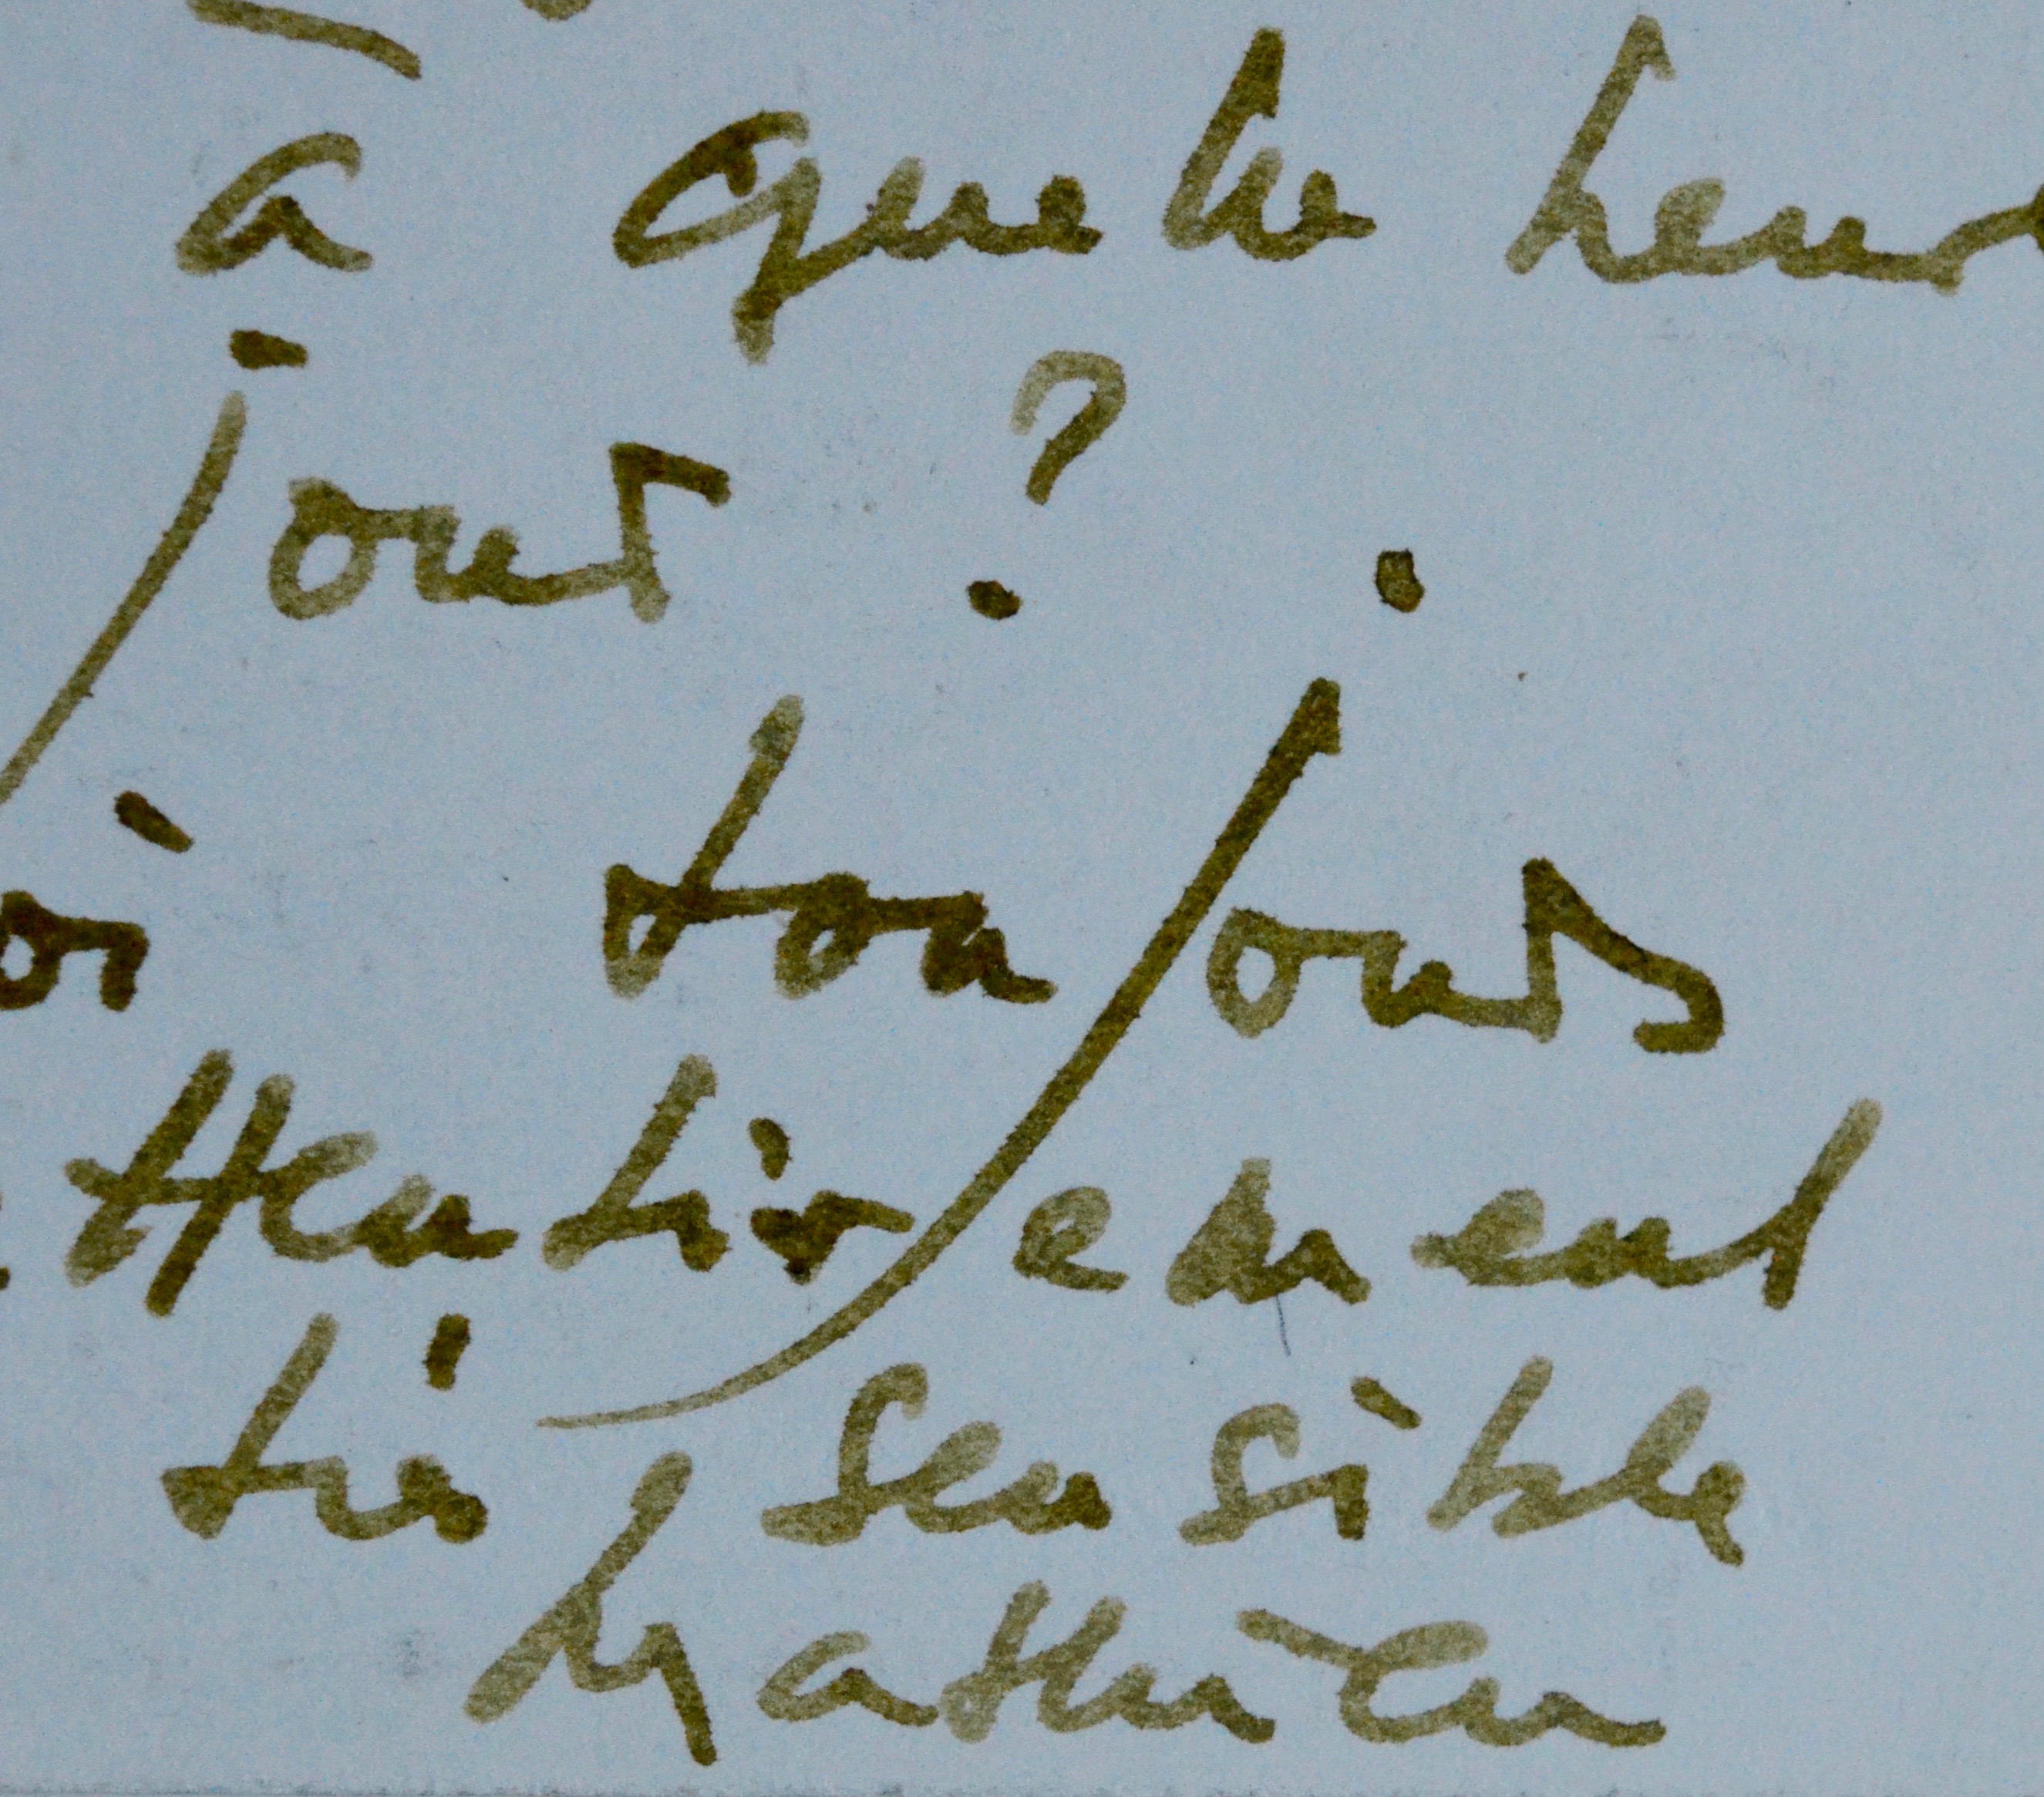 à quelle heur
jour ?
oi toujours
attentivement
très sensible
Mathieu